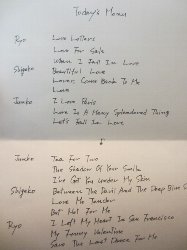 Today's Menu
Ryo Love Letters
Love For Sale
When I Fall In Love
Shigeko Beautiful Love
Lover, Come Back To Me
Love
Junko I Love Paris
Love Is A Many Splendored Thing
Let's Fall In Love
Junko Tea For Two
The Shadow Of Your Smile
I've Got You Under My Skin
Shigeko Between The Devil And The Deep Blue S
Love Me Tender
But Not For Me
Ryo I Left My Heart In San Francisco
My Funny Valentine
Save The Last Dance For Me